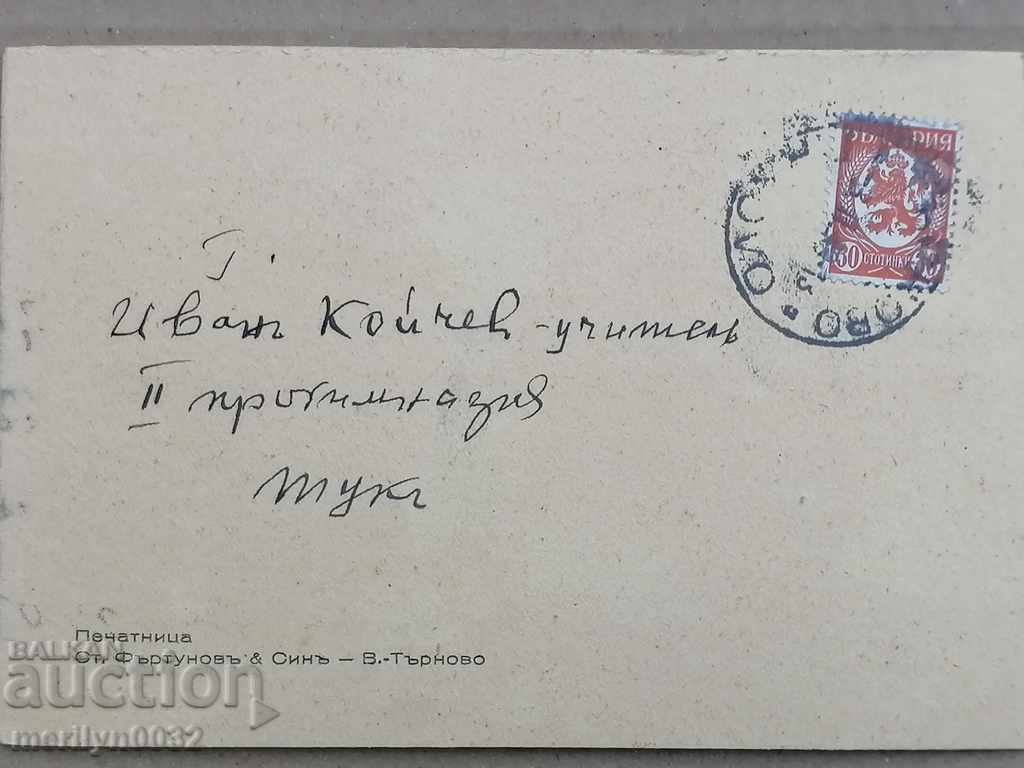 БЪЛГАРИЯ
30 СТОТИНКИ 30
Г.
Иван Койчев - учитель
II прогимназия
тукъ
Печатница
Ст. Фъртуновъ & Синъ — В.-Търново
BALKAN
auction
merilyn0032